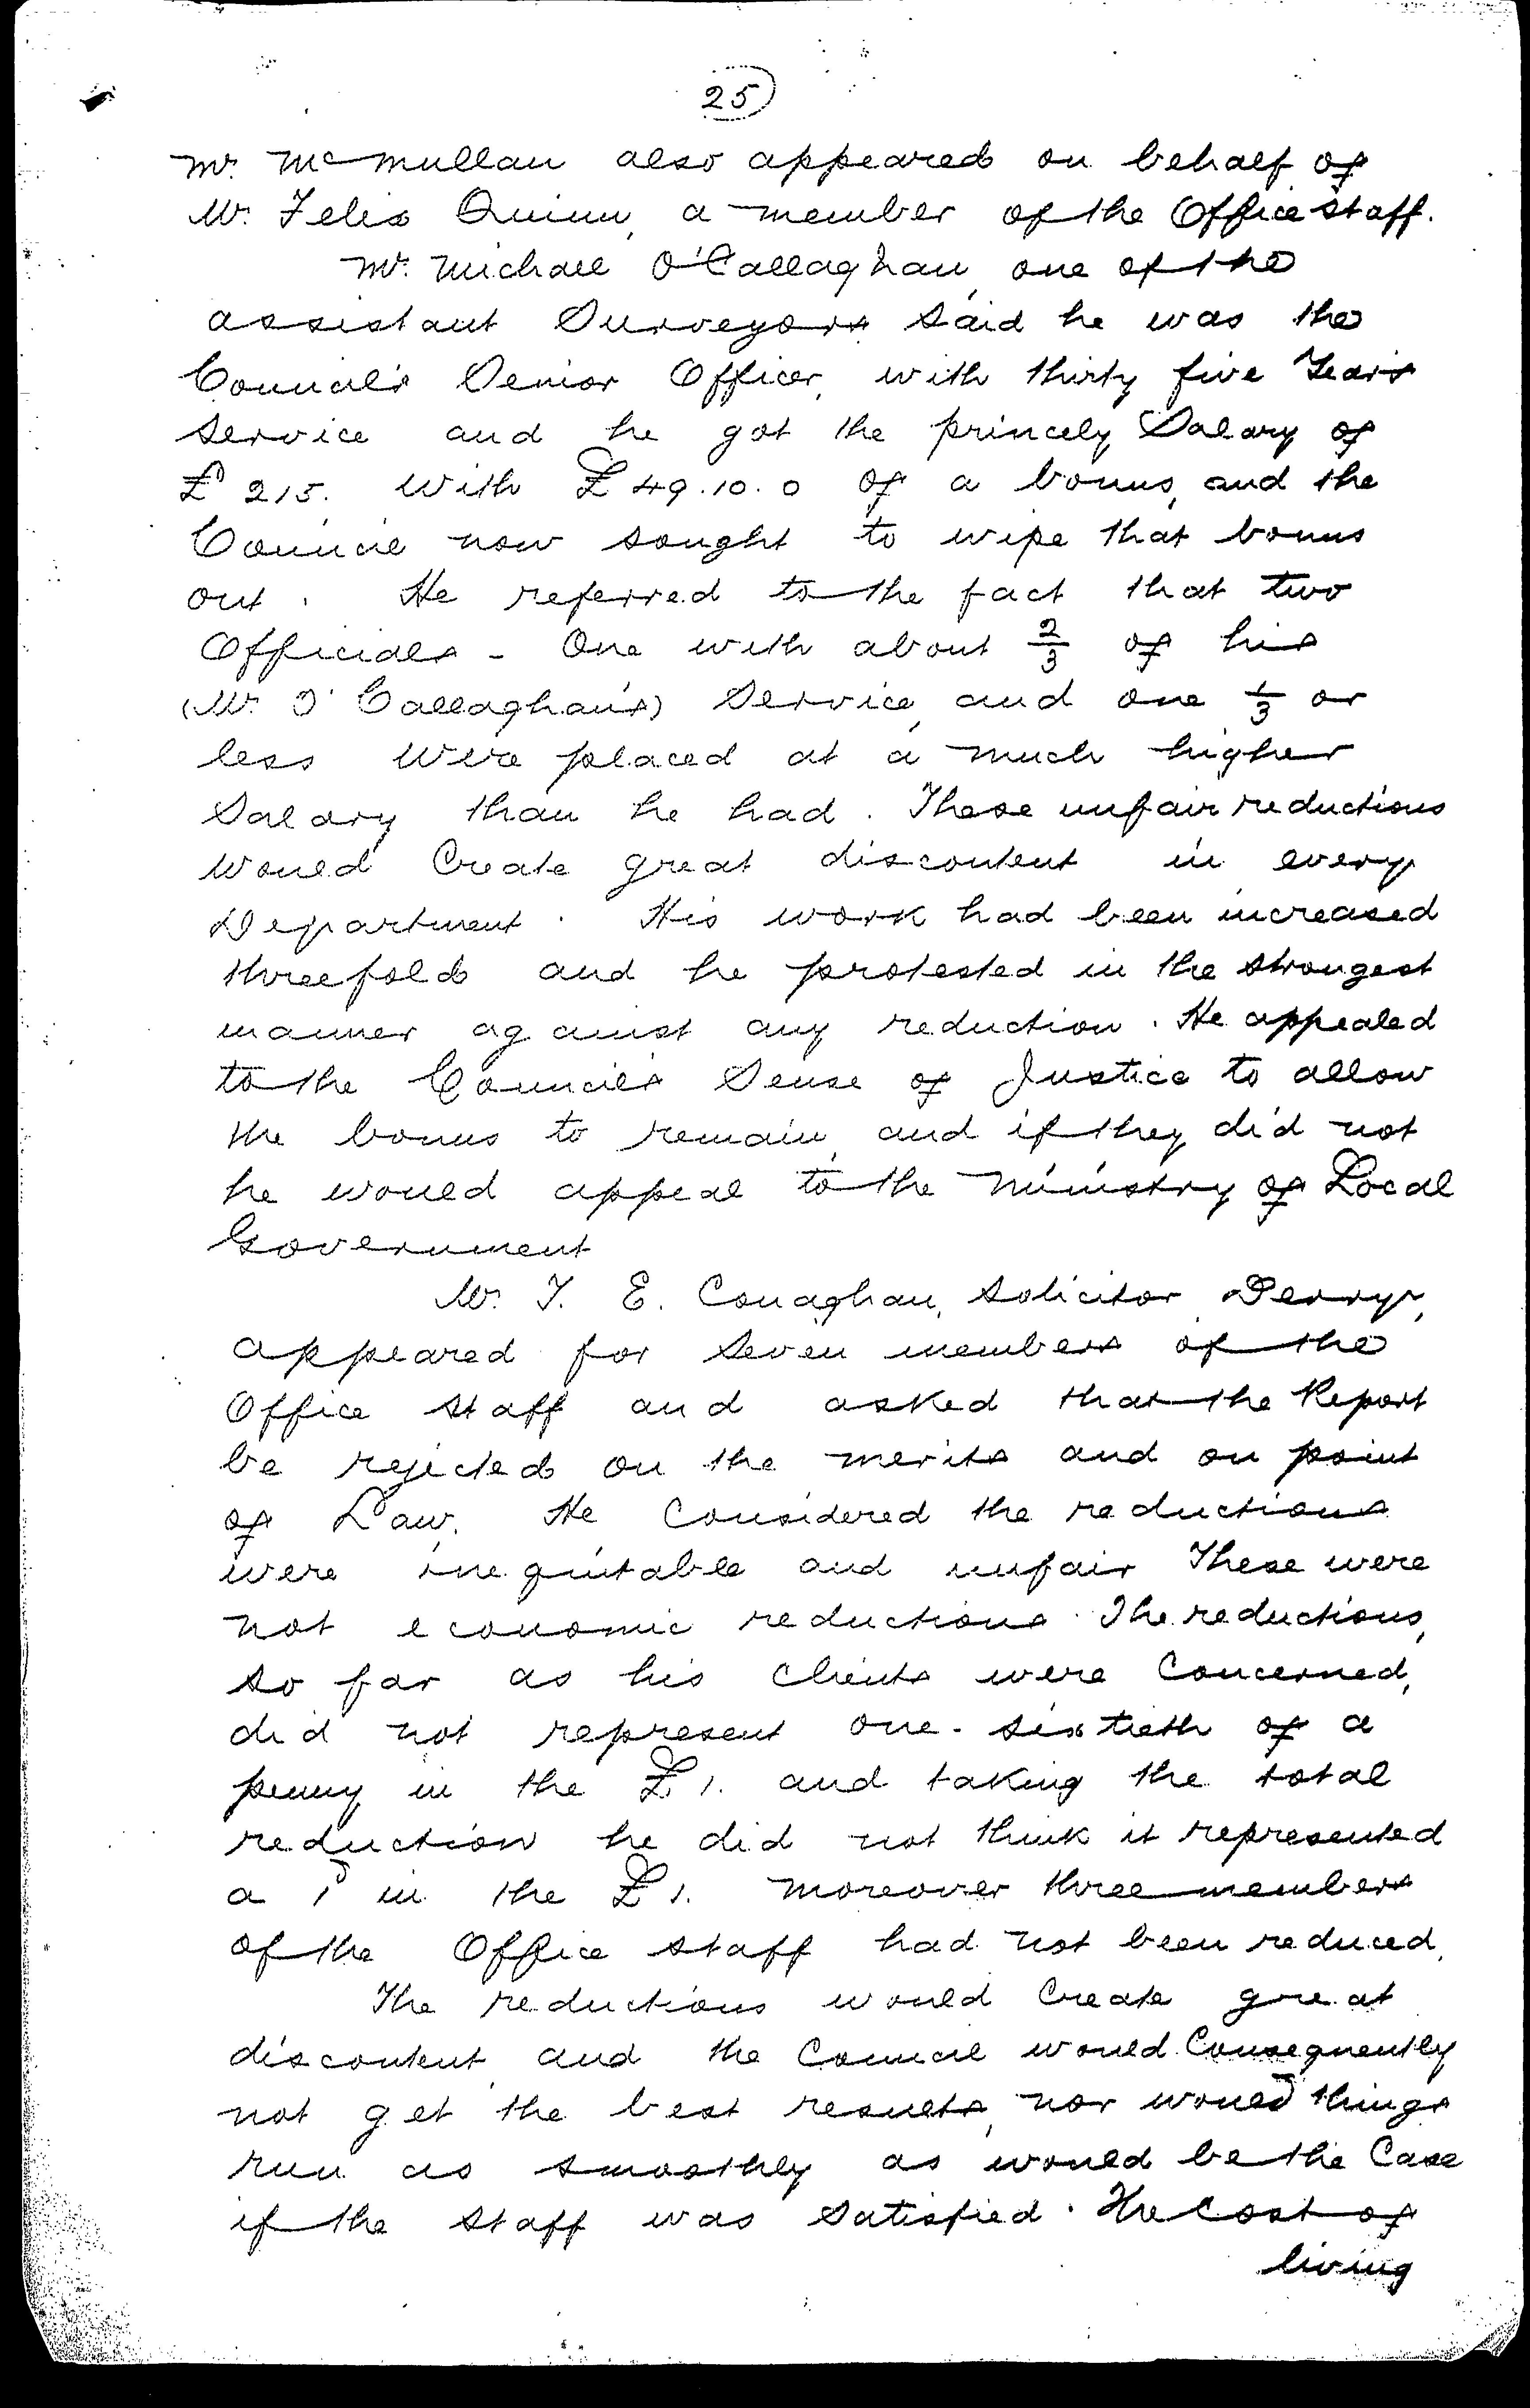 25
Mr. McMullan also appeared on behalf of
Mr. Felix Quinn, a member of the Office Staff.
Mr. Michael O'Callaghan, one of the
assistant Surveyors said he was the
Council's Senior Officer, with thirty five Years
service and he got the princely Salary of
£215. with £49.10.0 of a bonus, and the
Council now sought to wipe that bonus
out. He referred to the fact that two
Officials - One with about 2/3 of his
(Mr. O'Callaghan's) Service, and one 1/3 or
less were placed at a much higher
Salary than he had. These unfair reductions
would Create great discontent in every
Department. His work had been increased
threefold and he protested in the strongest
manner against any reduction. He appealed
to the Council's Sense of Justice to allow
the bonus to remain, and if they did not
he would appeal to the Ministry of Local
Government
Mr. T. E. Conaghan, Solicitor Derry,
appeared for Seven members of the
Office Staff and asked that the Report
be rejected on the merits and on point
of Law. He Considered the reductions
were inequitable and unfair These were
not economic reductions. The reductions,
so far as his Clients were Concerned,
did not represent one-sixtieth of a
penny in the £1. and taking the total
reduction he did not think it represented
a 1d in the £1. Moreover three members
of the Office Staff had not been reduced.
The reductions would Create great
discontent, and the Council would Consequently
not get the best results, nor would things
run as smoothly as would be the Case
if the Staff was Satisfied. The Cost of
living